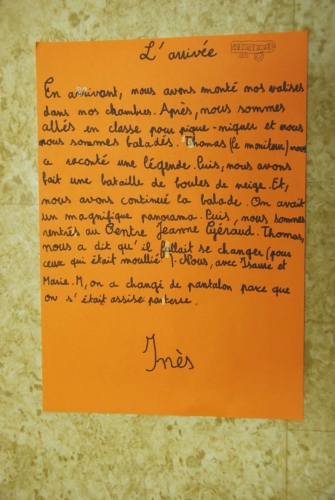 L'arrivée
En arrivant, nous avons monté nos valises
dans nos chambres. Après, nous sommes
allés en classe pour pique-niquer et nous
nous sommes baladés. Thomas (le moniteur) nous
a raconté une légende. Puis, nous avons
fait une bataille de boules de neige. Et,
nous avons continué la balade. On avait
un magnifique panorama. Puis, nous sommes
rentrés au Centre Jeanne Géraud. Thomas,
nous a dit qu'il fallait se changer (pour
ceux qui était mouillé). Nous, avec Isaure et
Marie. M, on a changé de pantalon parce que
on s'était assise par terre.
Inès